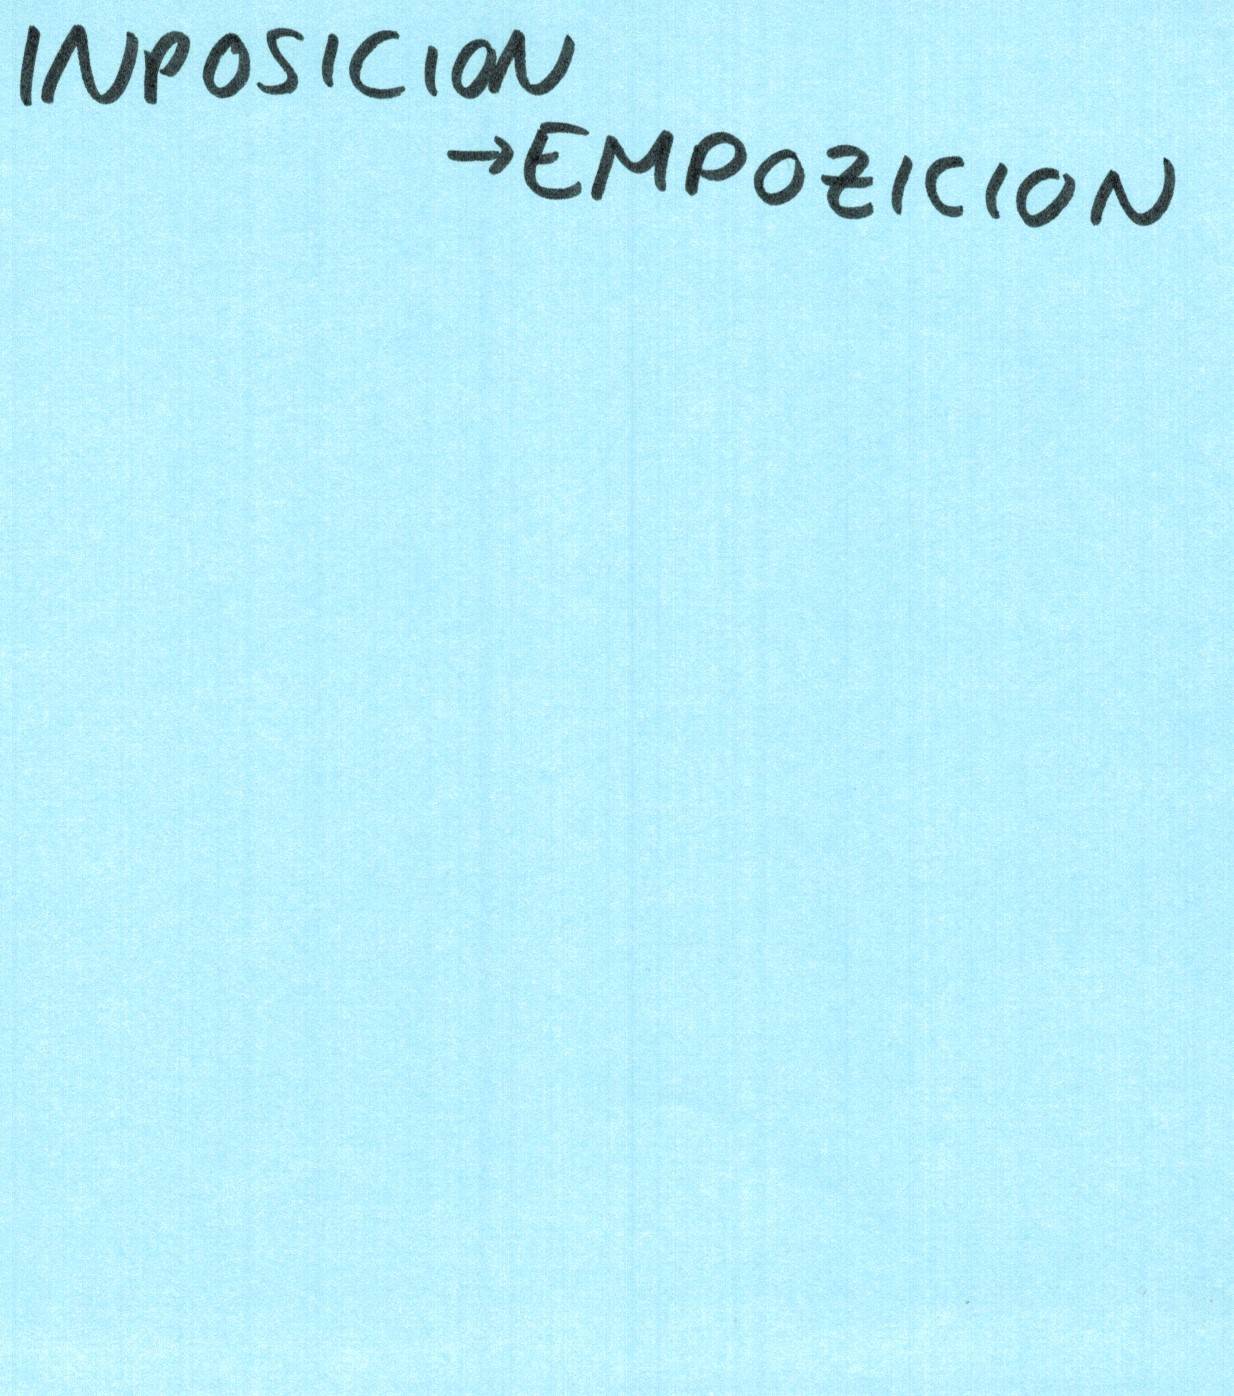 INPOSICION
→EMPOZICION